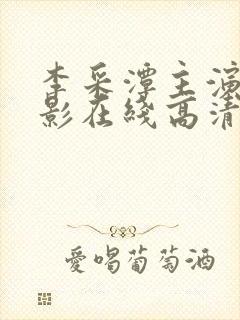 李采潭主演
影在线高清
爱喝葡萄酒